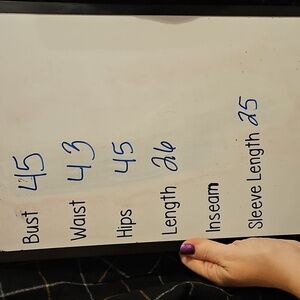 Bust 45
Waist 43
Hips 45
Length 26
Inseam
Sleeve Length 25